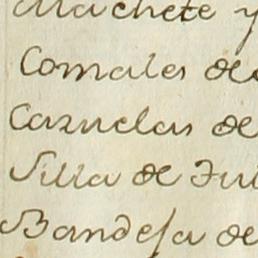 Machete y
Comales de
Cazuelas de
Silla de
Bandeja de